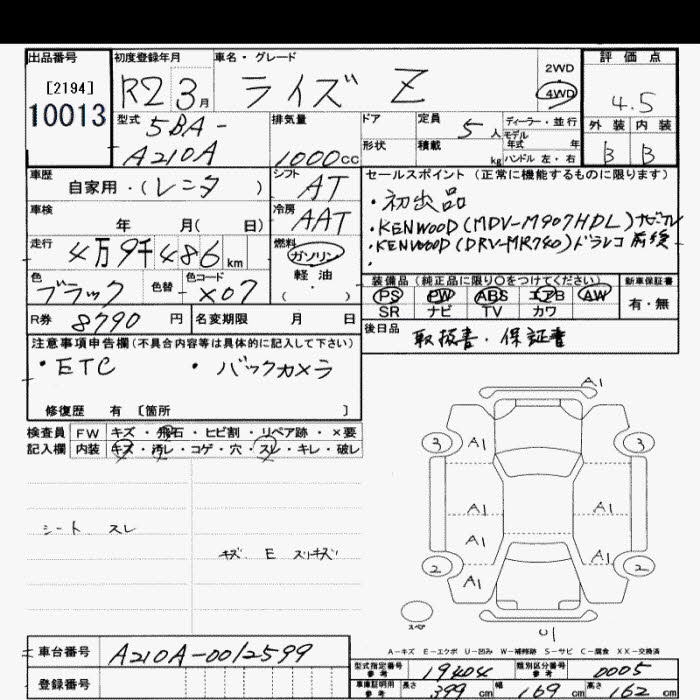 出品番号
[2194]
10013
初度登録年月 R2 3月
車名・グレード
ライズ Z
2WD
4WD
評価点
4.5
外装 内装
B B
型式
5BA-
A210A
排気量
1000cc
ドア
形状
定員 5人
積載 kg
ディーラー・並行
モデル年式 年
ハンドル 左・右
車歴
自家用・(レンタ)
シフト
AT
車検
年 月( 日)
冷房
AAT
走行
4万9千486km
燃料
ガソリン
軽油
( ・ )
色
ブラック
色替
色コード
X07
R券 8790円
名変期限 月 日
セールスポイント (正常に機能するものに限ります)
・初出品
・KENWOOD(MDV-M907HDL)ナビ TV
・KENWOOD(DRV-MR740)ドラレコ 前後
・
装備品 (純正品に限り〇をつけてください)
PS PW ABS エアB AW
SR ナビ TV カワ
新車保証書
有・無
後日品
取扱書・保証書
注意事項申告欄(不具合内容等は具体的に記入して下さい)
・ETC ・バックカメラ
修復歴 有 〔箇所 〕
検査員記入欄
FW キズ・飛石・ヒビ割・リペア跡・×要
内装 キズ・汚レ・コゲ・穴・スレ・キレ・破レ
シート スレ
キズ E スリキズ
A1
3
A1
3
A1
A1
A1
A1
2
A1
2
スペア
U1
A-キズ E-エクボ U-凹み W-補修跡 S-サビ C-腐食 XX-交換済
車台番号 A210A-0012599
登録番号
型式指定番号 参考 19404
類別区分番号 参考 0005
車庫証明用 参考 長さ 399cm 幅 169cm 高さ 162cm